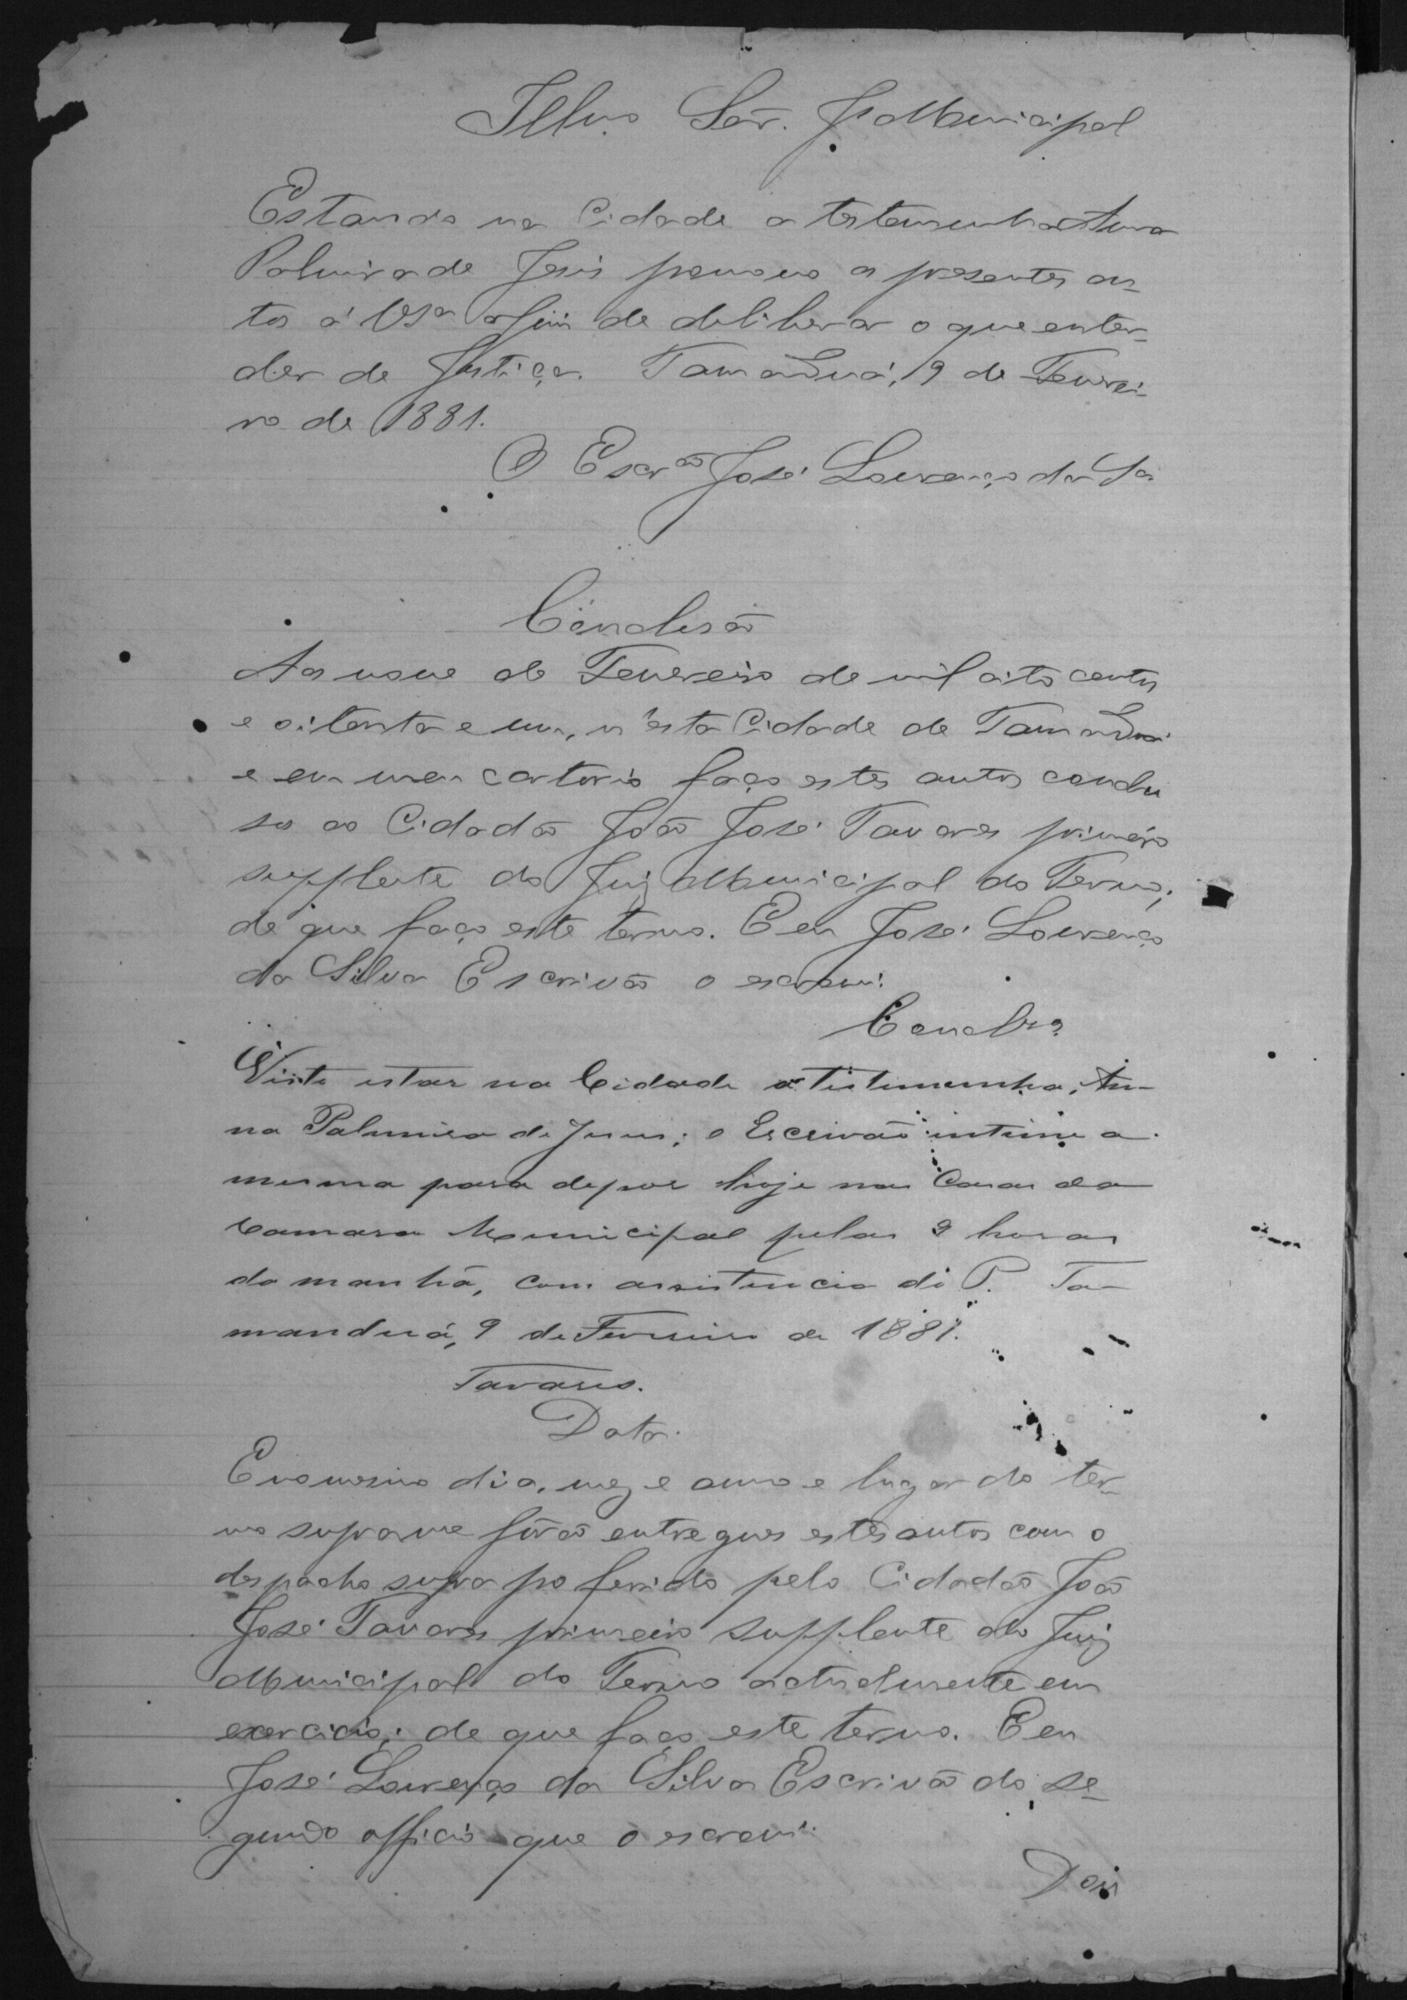 Illmo Sñr. Jz Municipal
Estando na Cidade a testemunha Anna
Palmira de Jesus ponho os presentes au-
tos á VSa afim de deliberar o que enten-
der de Justiça. Tamanduá, 9 de Feverei-
ro de 1881.
O Escrão José Lourenço da Sa
Conclusão
Aos nove de Fevereiro de mil oito centos
e oitenta e um, n'esta Cidade de Tamanduá
e em meu cartorio faço estes autos conclu
sos ao Cidadão João José Tavares primeiro
supplente do Juiz Municipal do Termo;
de que faço este termo. E eu José Lourenço
da Silva Escrivão o escrevi.
Conclos
Visto estar na Cidade a testemunha, An-
na Palmira de Jesus; o Escrivão intime a
mesma para depor hoje nas Casas da
Camara Municipal pelas 9 horas
da manhã, com assistencia do P. Ta-
manduá, 9 de Fevereiro de 1881.
Tavares.
Data.
E no mesmo dia, mez e anno e lugar do ter-
mo supra me forão entregues estes autos com o
despacho supra proferido pelo Cidadão João
José Tavares primeiro supplente do Juiz
Municipal do Termo actualmente em
exercicio; de que faço este termo. E eu
José Lourenço da Silva Escrivão do se-
gundo officio que o escrevi.